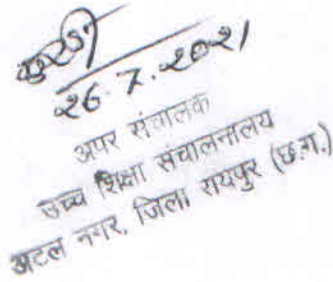 26.7.2021
अपर संचालक
उच्च शिक्षा संचालनालय
अटल नगर, जिला रायपुर (छ.ग.)